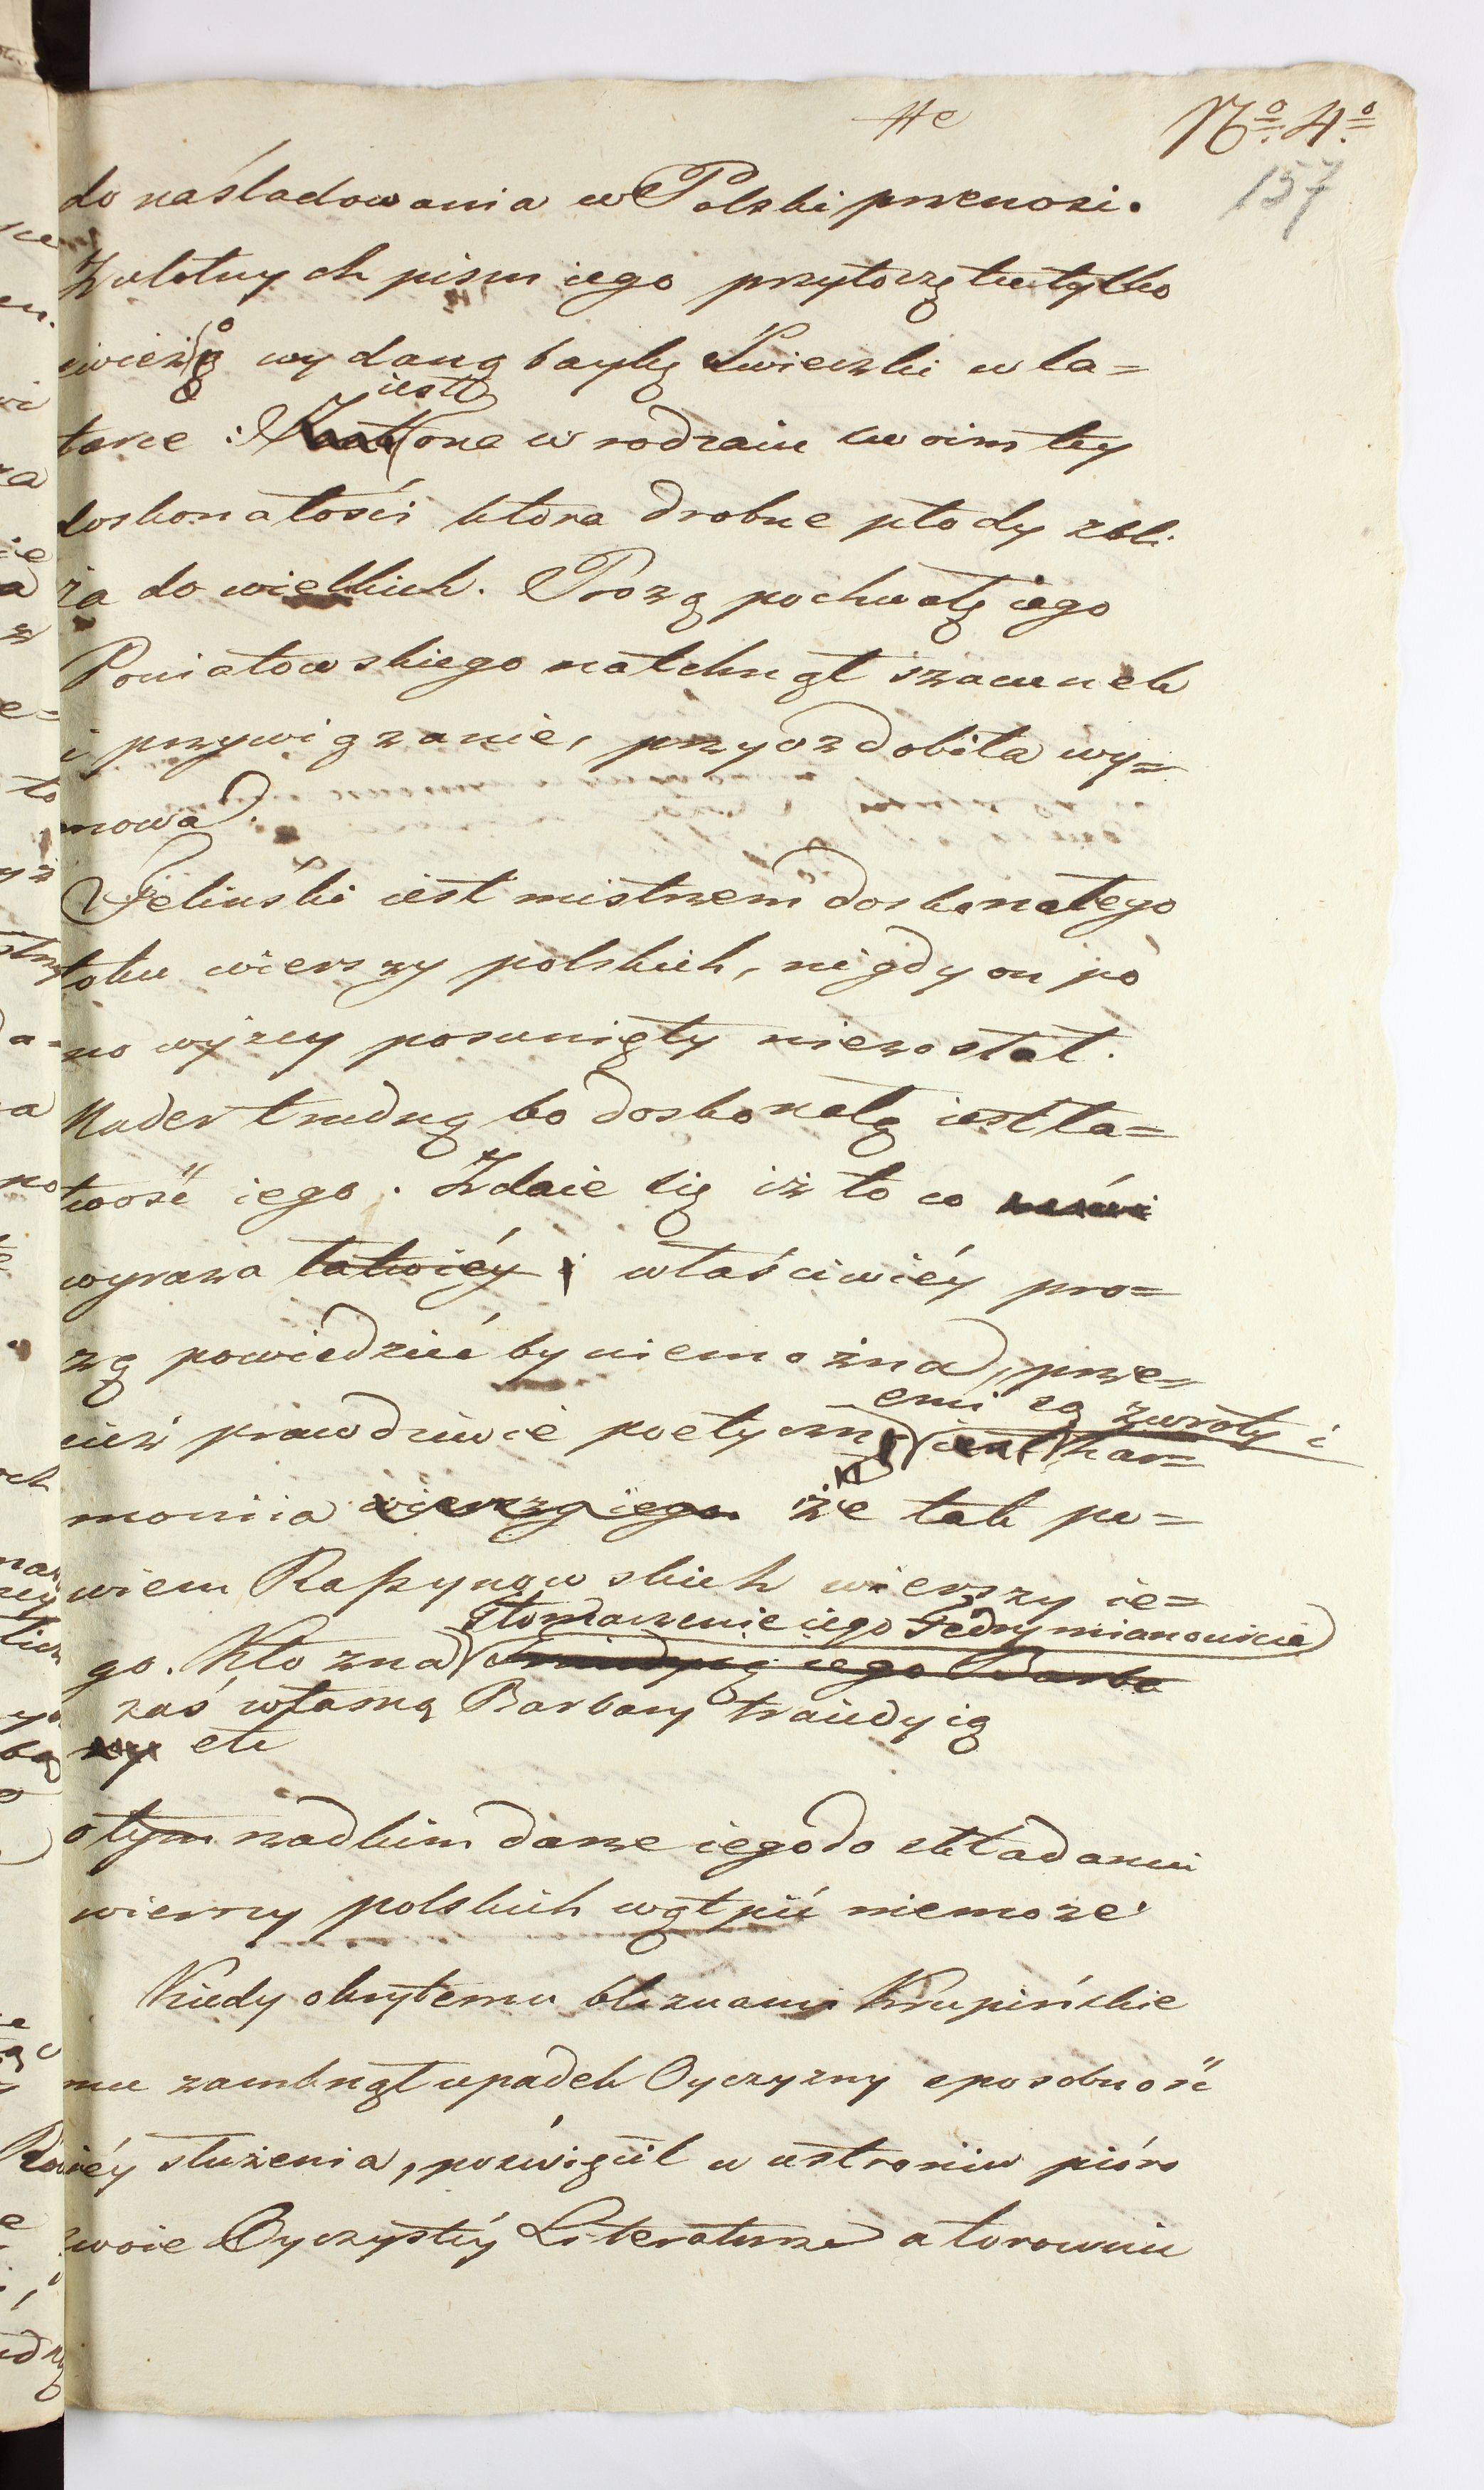 #e
Nº. 4º
157
do naśladowania w Polski przenosi.
Z ulotnych pism iego przytoczę tu tylko
świeżo wydaną baykę Świeczki w la=
tarce : iest one w rodzaiu swoim tey
doskonałości która drobne płody zbli
ża do wielkich. Prozą pochwałę iego
Poniatowskiego natchnął szacunek
i przywiązanie, przyozdobiła wy=
mowa.
Feliński iest mistrzem doskonałego
toku wierszy polskich, nigdy on po
no wyżey posunięty niezostał.
Nader trudną bo doskonałą iest ła=
twość iego. Zdaie się iż to co
wyraża łatwiéy i właściwiéy pro=
zą powiedzieć by niemożna, prze=
emi są zwroty i
cież prawdziwie poetyczn iest har=
moniia wierszy iego że tak po=
wiem Raszynowskich wierszy ie=
tłomaczenie iego Fedry mianowicie
go. Kto zna Traiedyią iego Barba
zaś własną Barbary traiedyią
ry etc
o tym rzadkim darze iego do składania
wierszy polskich wątpić niemoże
Kiedy okrytemu bliznami Kropińskie
mu zamknął upadek Oyczyzny sposobność
iéy służenia, poświęcił w ustroniu pióro
swoie Oyczystéy Literaturze a torowniu